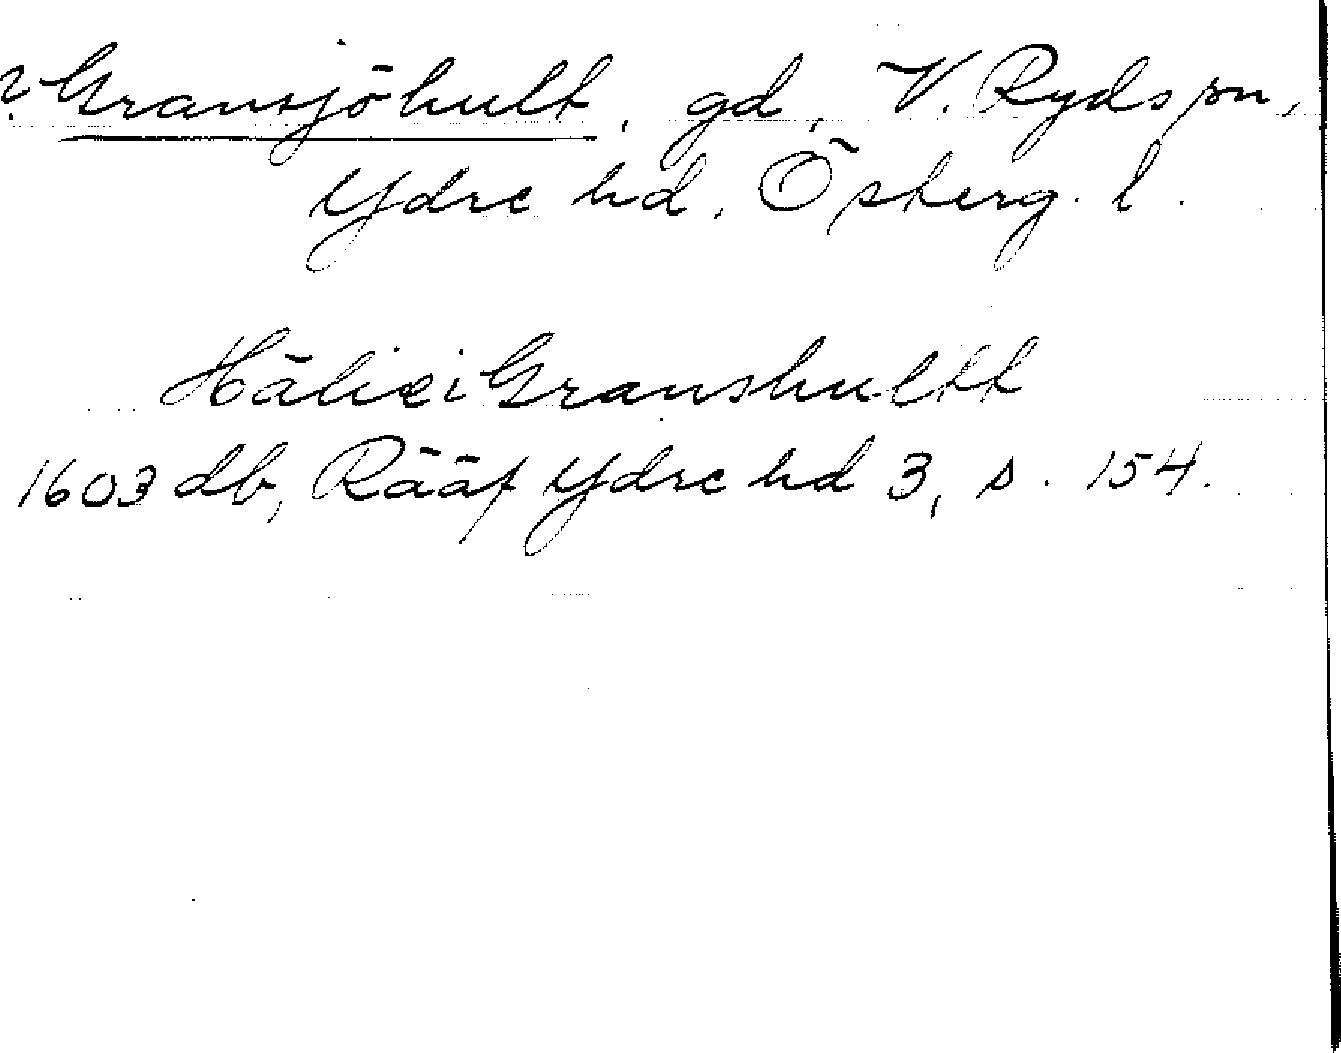 ? Gransjöhult, gd, V. Ryds sn,
Ydre hd, Österg. l.
i Granshultt
1603 db, Rääf Ydre hd 3, s. 154.